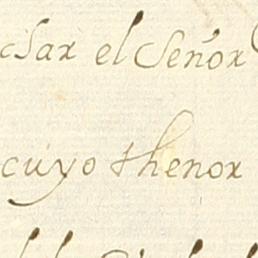 cisar el Señor
cuyo thenor